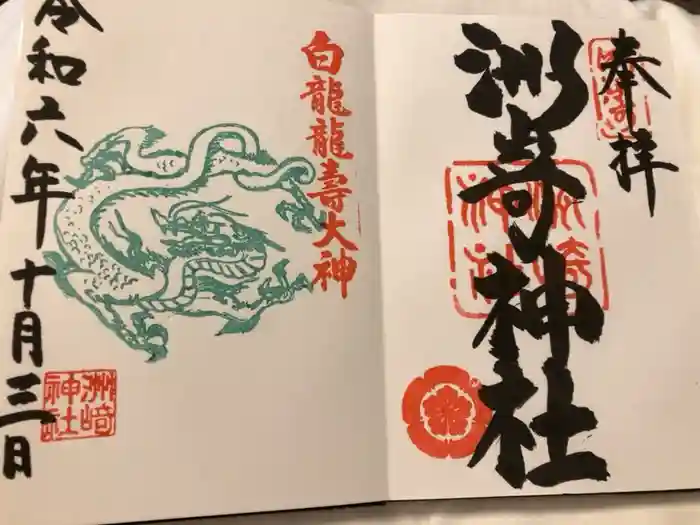 奉拝
洲嵜神社
洲崎
神社
白龍龍壽大神
令和六年十月三日
洲崎
神社